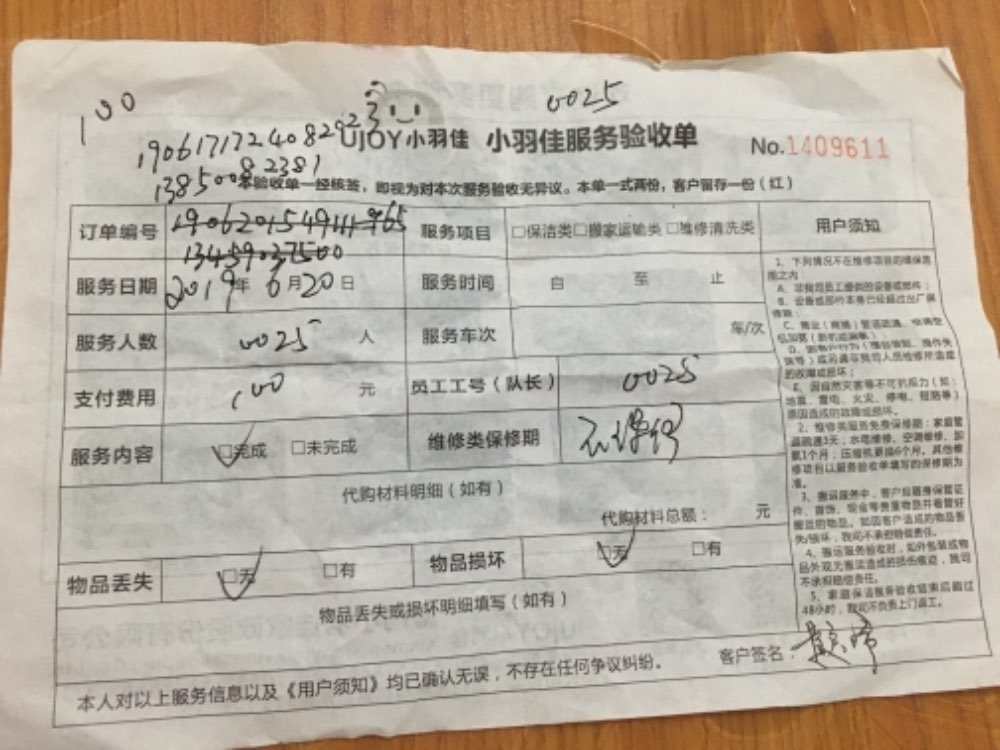 100
0025
190617172408292
3
UJOY小羽佳 小羽佳服务验收单
No.1409611
13850082381
本验收单一经核签，即视为对本次服务验收无异议。本单一式两份，客户留存一份（红）
订单编号 服务项目 □保洁类□搬家运输类□维修清洗类 用户须知
13459037500
服务日期 2019年6月20日 服务时间 自 至 止
服务人数 0025 人 服务车次 车/次
支付费用 100 元 员工工号（队长） 0025
服务内容 □完成 □未完成 维修类保修期 不保修
代购材料明细（如有）
代购材料总额： 元
物品丢失 □无 □有 物品损坏 □无 □有
物品丢失或损坏明细填写（如有）
客户签名：
本人对以上服务信息以及《用户须知》均已确认无误，不存在任何争议纠纷。
1、下列情况不在维修项目的维保范
围之内：
A、非我司员工提供的设备或部件；
B、设备或部件本身已经超过出厂保
修期；
C、商业（商铺）管道疏通、空调空
D、
误等）或另请非我司人员维修所造成
的故障或损坏；
E、因自然灾害等不可抗拒力（如：
地震、雷电、火灾、停电、短路等）
原因造成的故障或损坏。
2、维修类服务免费保修期：家庭管
道疏通3天；水电维修、空调维修、加
氨1个月；压缩机更换6个月。其他维
修项目以服务验收单填写的保修期为
准。
3、搬运服务中，客户应随身保管证
件、首饰、现金等贵重物品并看管好
搬运的物品。如因客户造成的物品丢
失/损坏，我司不承担赔偿责任。
4、搬运服务验收时，如外包装或物
品外观无搬运造成的损伤痕迹，我司
不承担赔偿责任。
5、家庭保洁服务验收结束后超过
48小时，我司不负责上门返工。